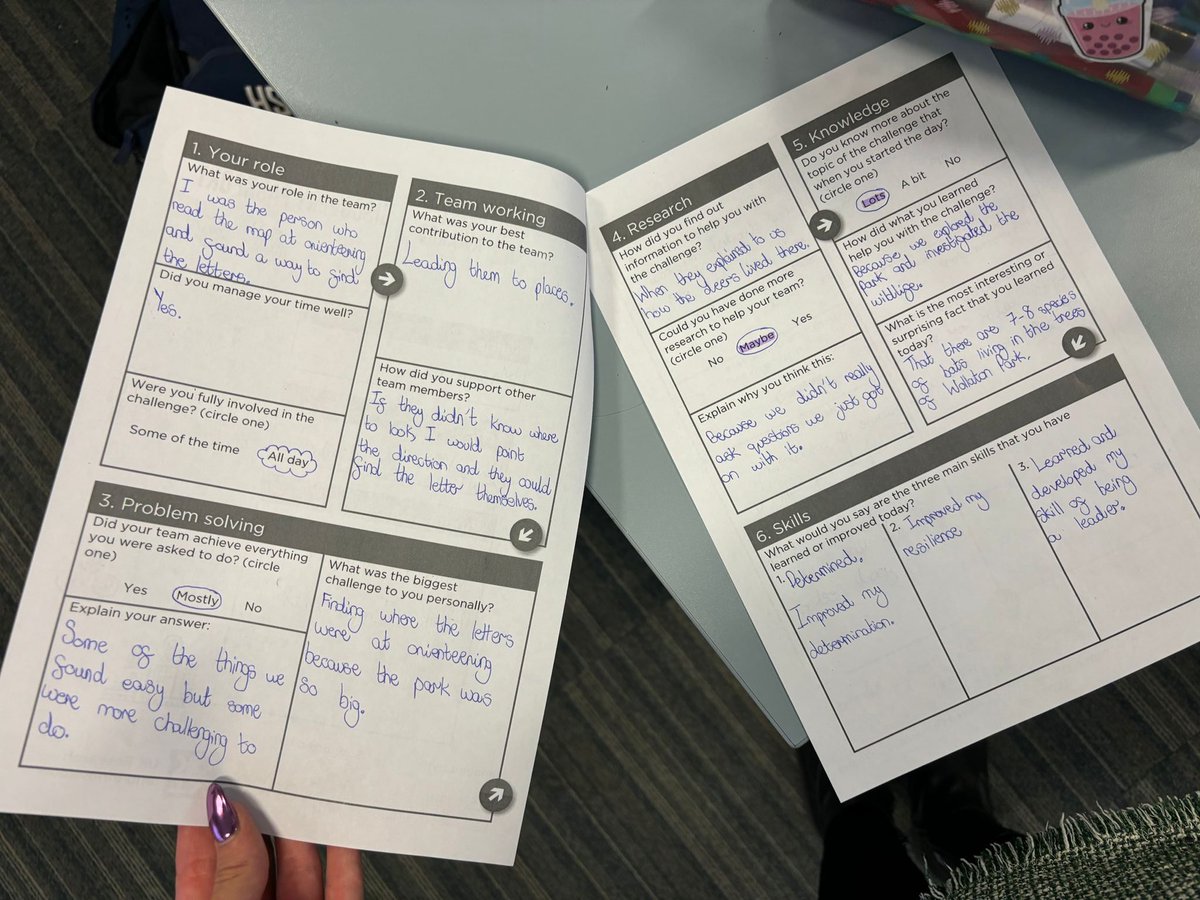 SH
1. Your role
What was your role in the team?
I was the person who
read the map at orienteering
and found a way to find
the letters.
Did you manage your time well?
Yes.
Were you fully involved in the
challenge? (circle one)
Some of the time All day
2. Team working
What was your best
contribution to the team?
Leading them to places.
How did you support other
team members?
If they didn't know where
to look I would point
the direction and they could
find the letter themselves.
3. Problem solving
Did your team achieve everything
you were asked to do? (circle
one)
Yes Mostly No
Explain your answer:
Some of the things we
found easy but some
were more challenging to
do.
What was the biggest
challenge to you personally?
Finding where the letters
were at orienteering
because the park was
so big.
4. Research
How did you find out
information to help you with
the challenge?
When they explained to us
how the deers lived there.
Could you have done more
research to help your team?
(circle one)
No Maybe Yes
Explain why you think this:
Because we didn't really
ask questions we just got
on with it.
5. Knowledge
Do you know more about the
topic of the challenge that
when you started the day?
(circle one)
Lots A bit No
How did what you learned
help you with the challenge?
Because we explored the
park and investigated the
wildlife.
What is the most interesting or
surprising fact that you learned
today?
That there are 7-8 species
of bats living in the trees
of Wollaton Park.
6. Skills
What would you say are the three main skills that you have
learned or improved today?
1. Determined.
Improved my
determination.
2. Improved my
resilience
3. Learned and
developed my
skill of being
a leader.